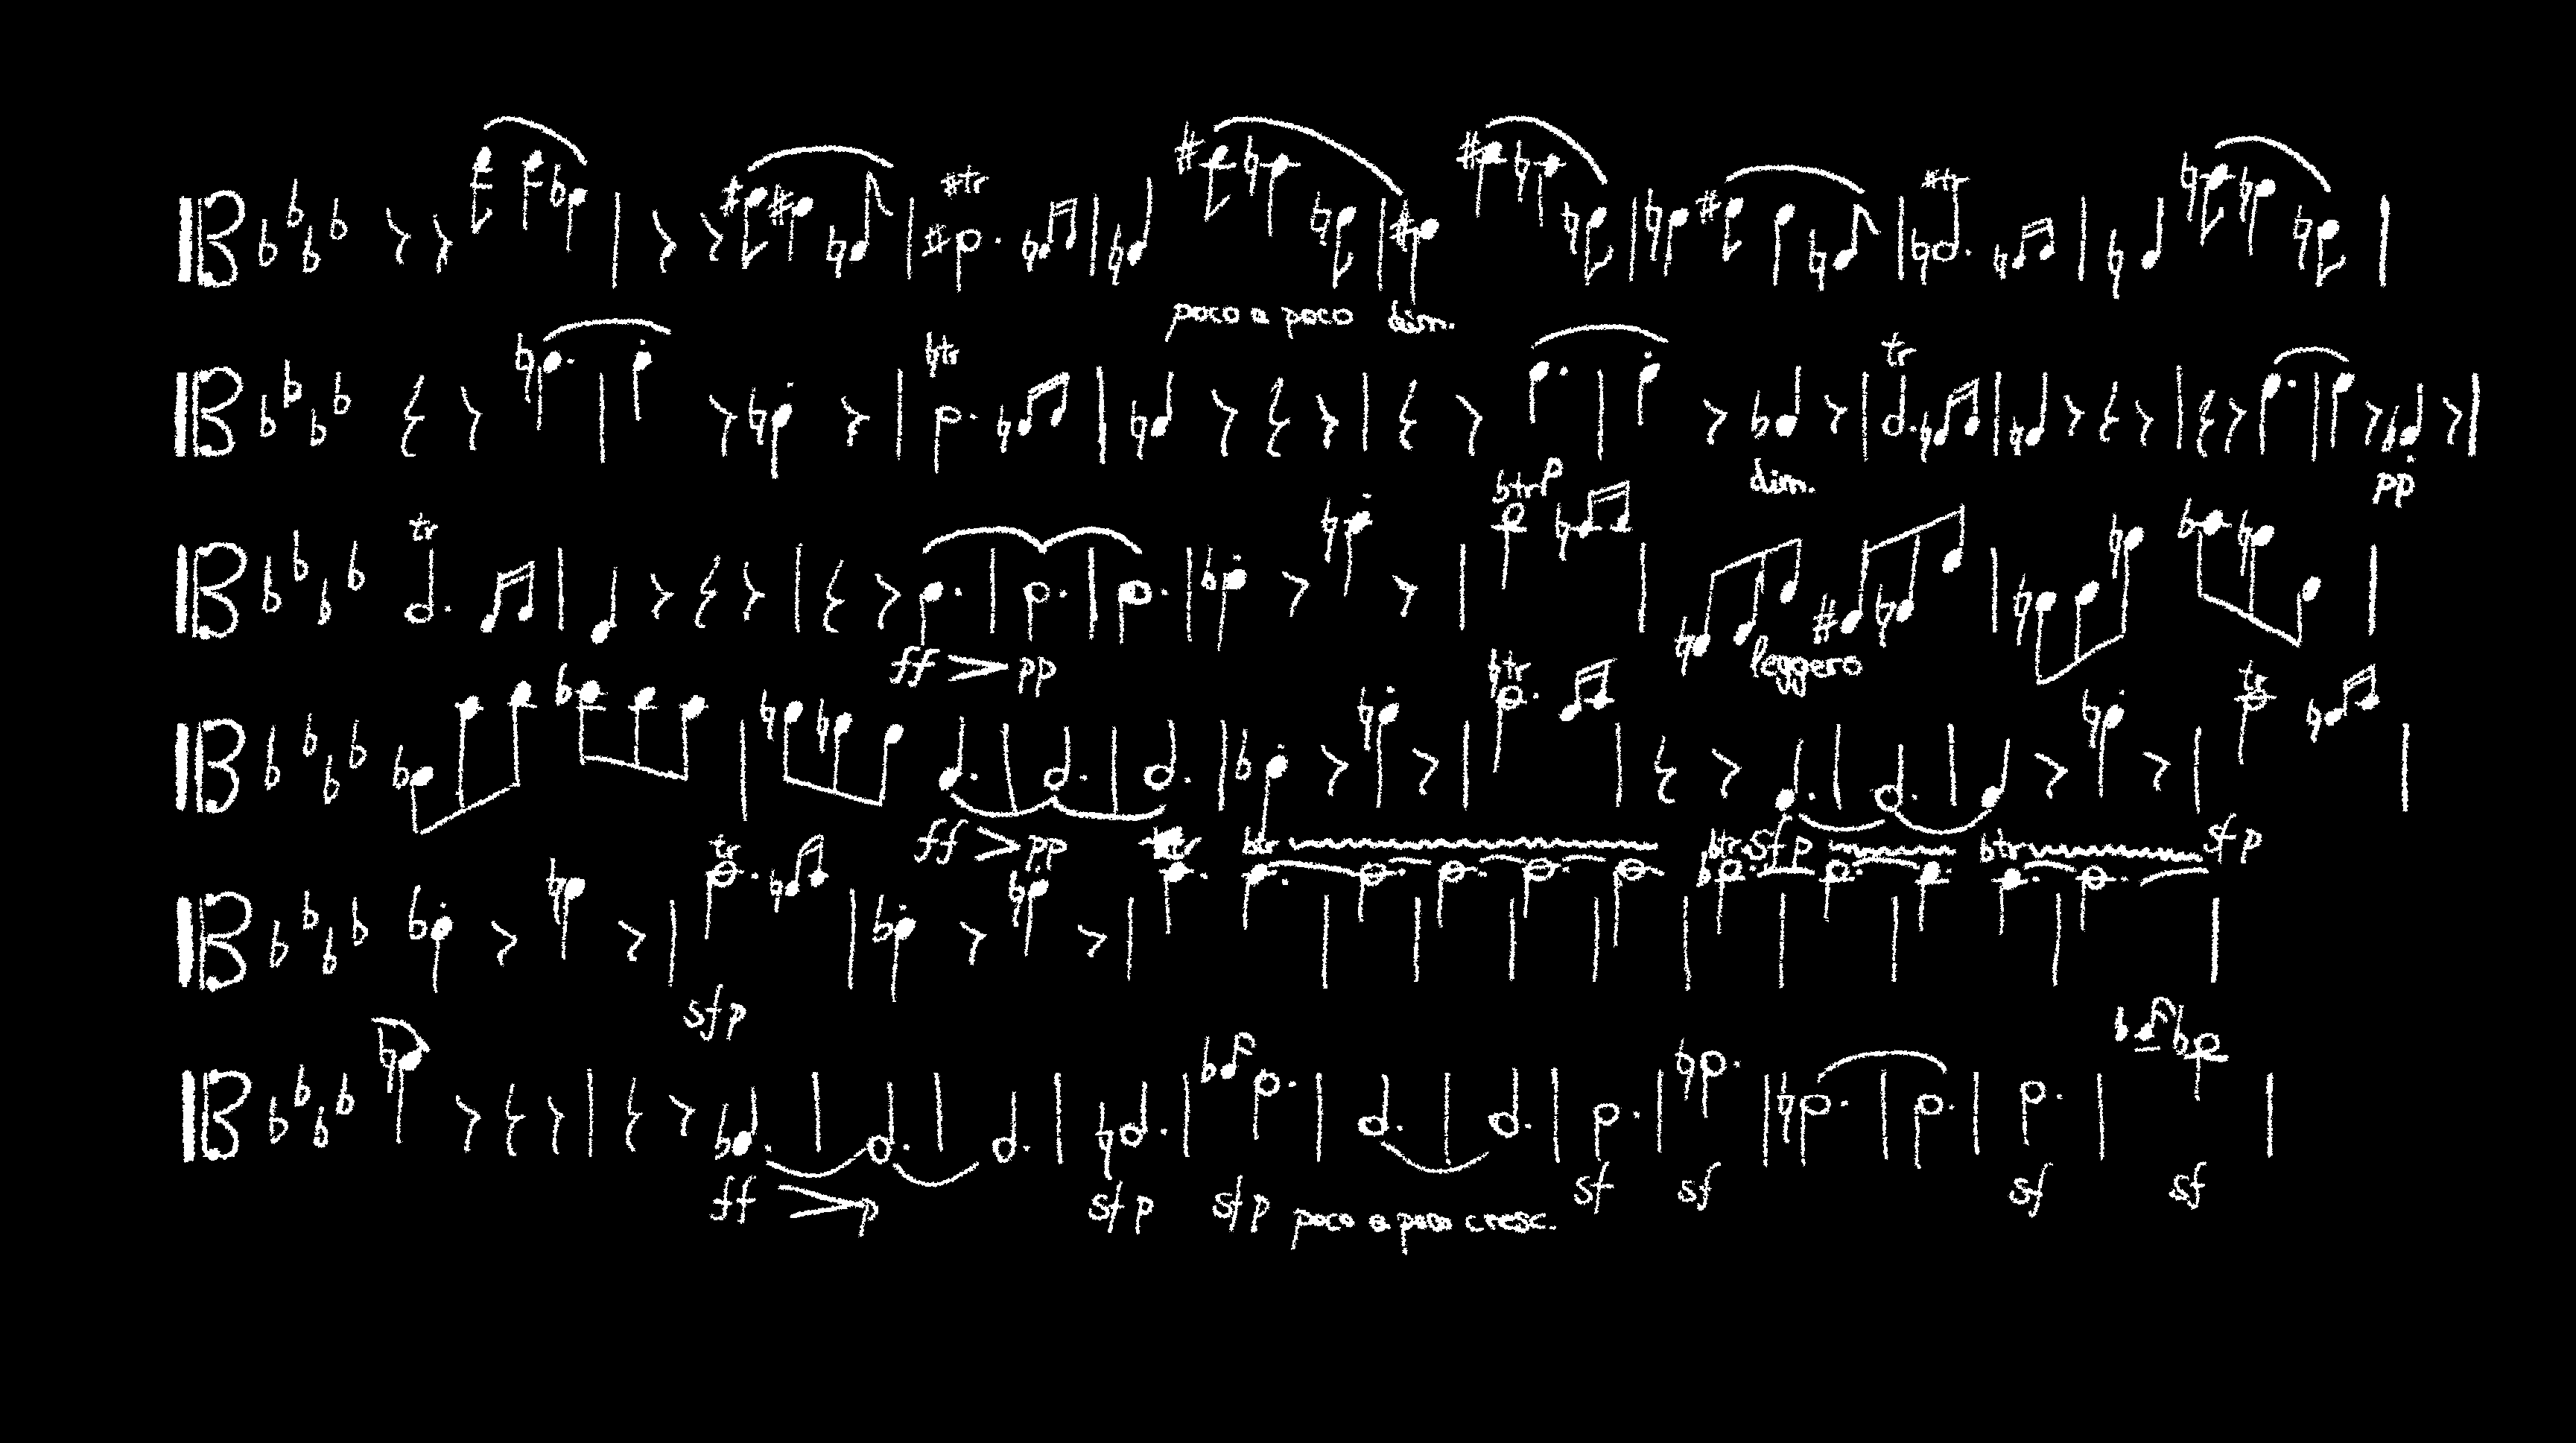 #tr #tr
poco a poco dim.
♮tr tr
dim. pp
tr ♭trp
ff pp leggero
♭tr tr
ff pp sfp sfp
tr tr ♭tr ♭tr ♭tr
sfp
ff p sfp sfp poco a poco cresc. sf sf sf sf